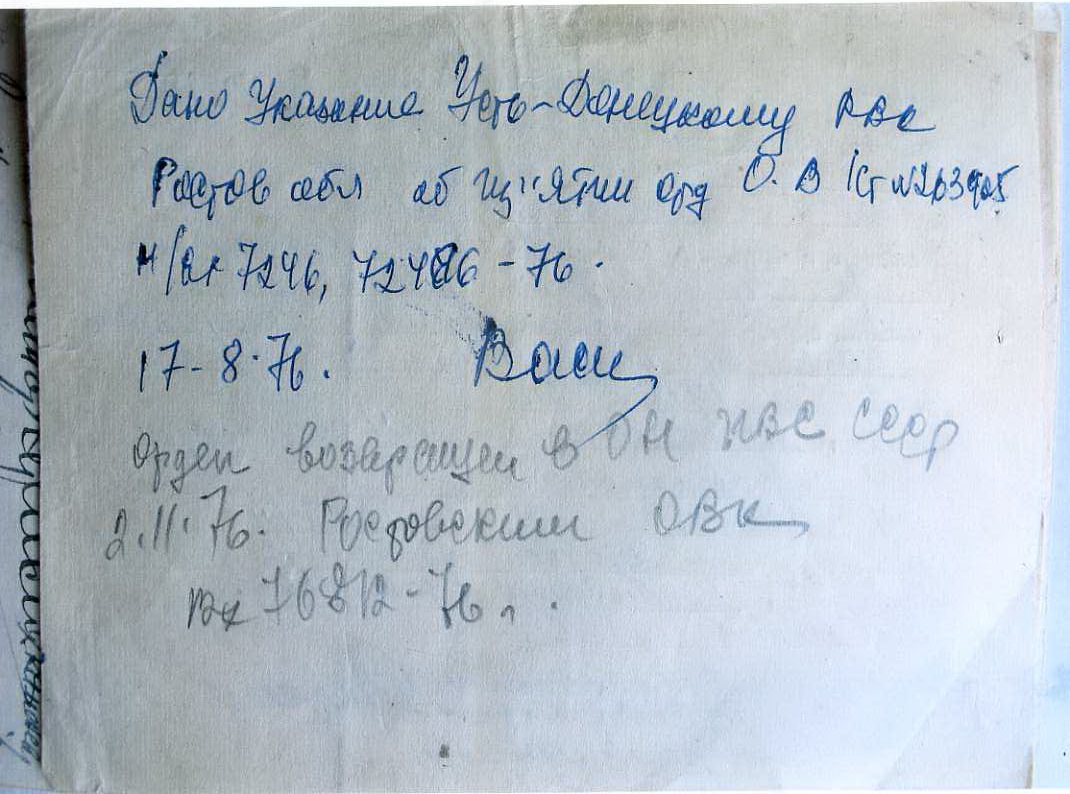 Дано Указание Усть-Донецкому РВК
Ростов обл об из"ятии орд О. В Iст №263905
н/вх 7246, 72486 - 76.
17-8.76. Васи
орден возвращен в ОН ПВС СССР
2.11.76. Ростовским ОВК
вх 76812-76 г.